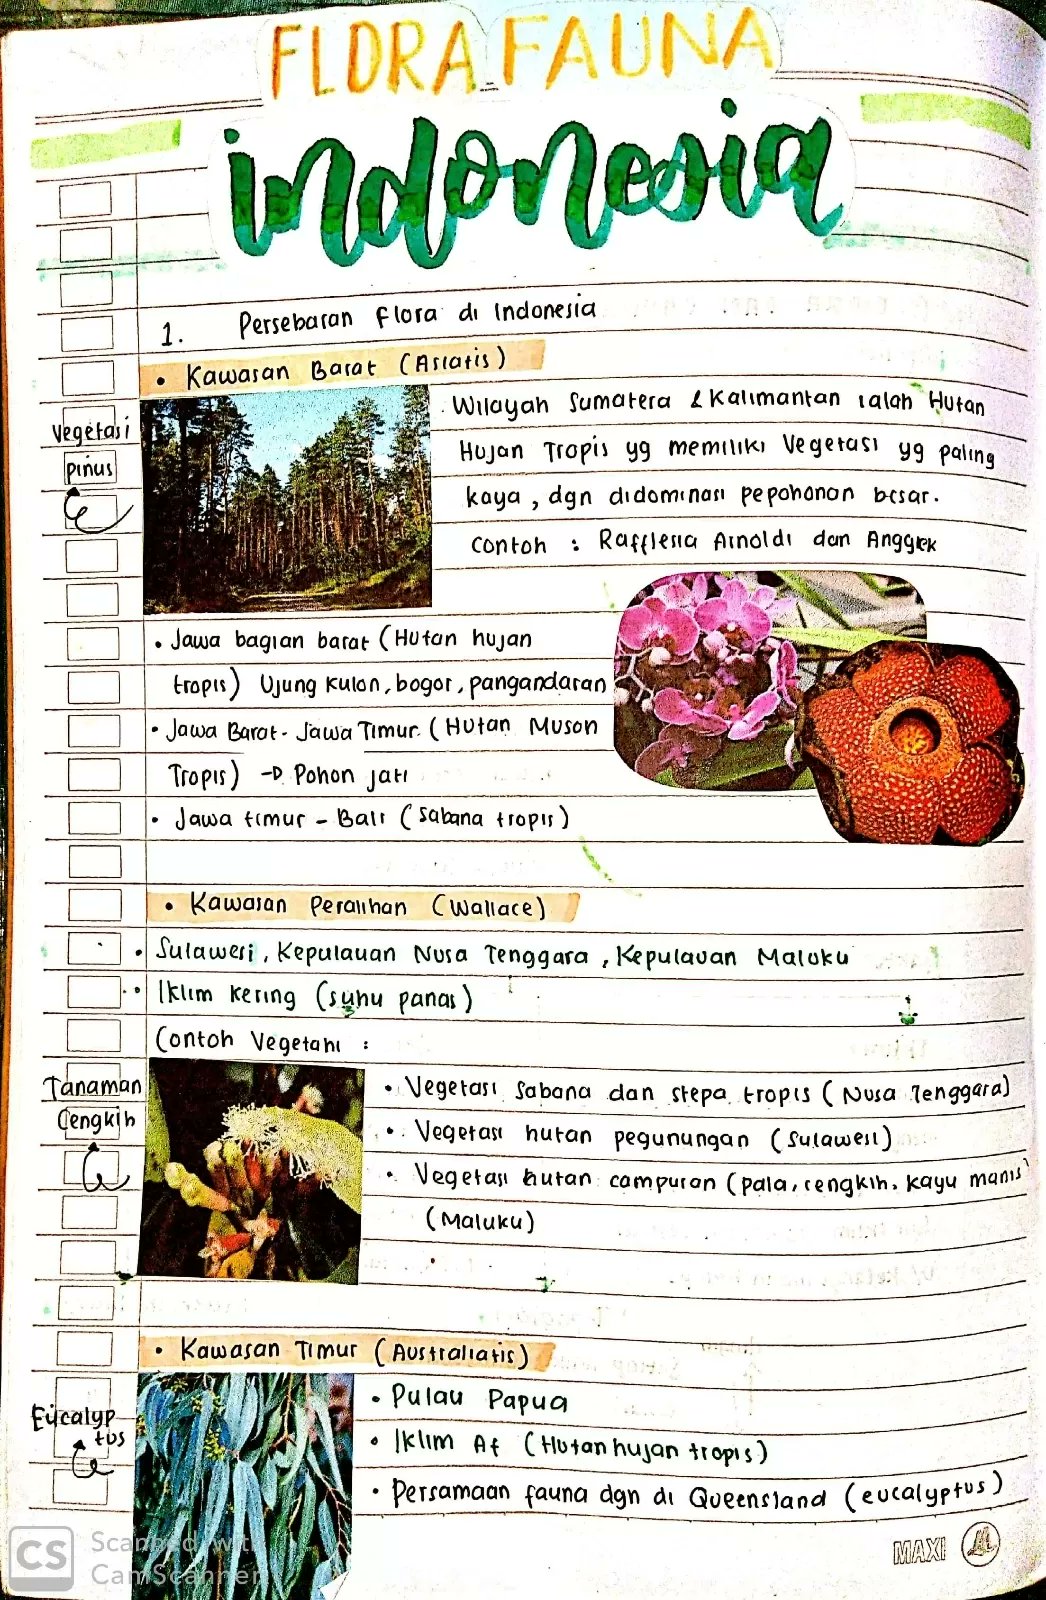 FLORA FAUNA
indonesia
1. Persebaran Flora di Indonesia
• Kawasan Barat (Asiatis)
Vegetasi
pinus
Wilayah Sumatera & Kalimantan ialah Hutan
Hujan Tropis yg memiliki Vegetasi yg paling
kaya, dgn didominasi pepohonan besar.
Contoh : Rafflesia Arnoldi dan Anggrek
• Jawa bagian barat (Hutan hujan
tropis) Ujung Kulon, bogor, pangandaran
• Jawa Barat - Jawa Timur (Hutan Muson
Tropis) → Pohon jati
• Jawa timur - Bali (sabana tropis)
• Kawasan Peralihan (Wallace)
• Sulawesi, Kepulauan Nusa Tenggara, Kepulauan Maluku
• Iklim kering (suhu panas)
Contoh Vegetahi :
Tanaman
Cengkih
• Vegetasi Sabana dan stepa tropis (Nusa Tenggara)
• Vegetasi hutan pegunungan (Sulawesi)
• Vegetasi hutan campuran (pala, cengkih, kayu manis)
(Maluku)
• Kawasan Timur (Australiatis)
Eucalyp
tus
• Pulau Papua
• Iklim Af (Hutan hujan tropis)
• Persamaan fauna dgn di Queensland (eucalyptus)
MAXI
CS Scanned with
CamScanner